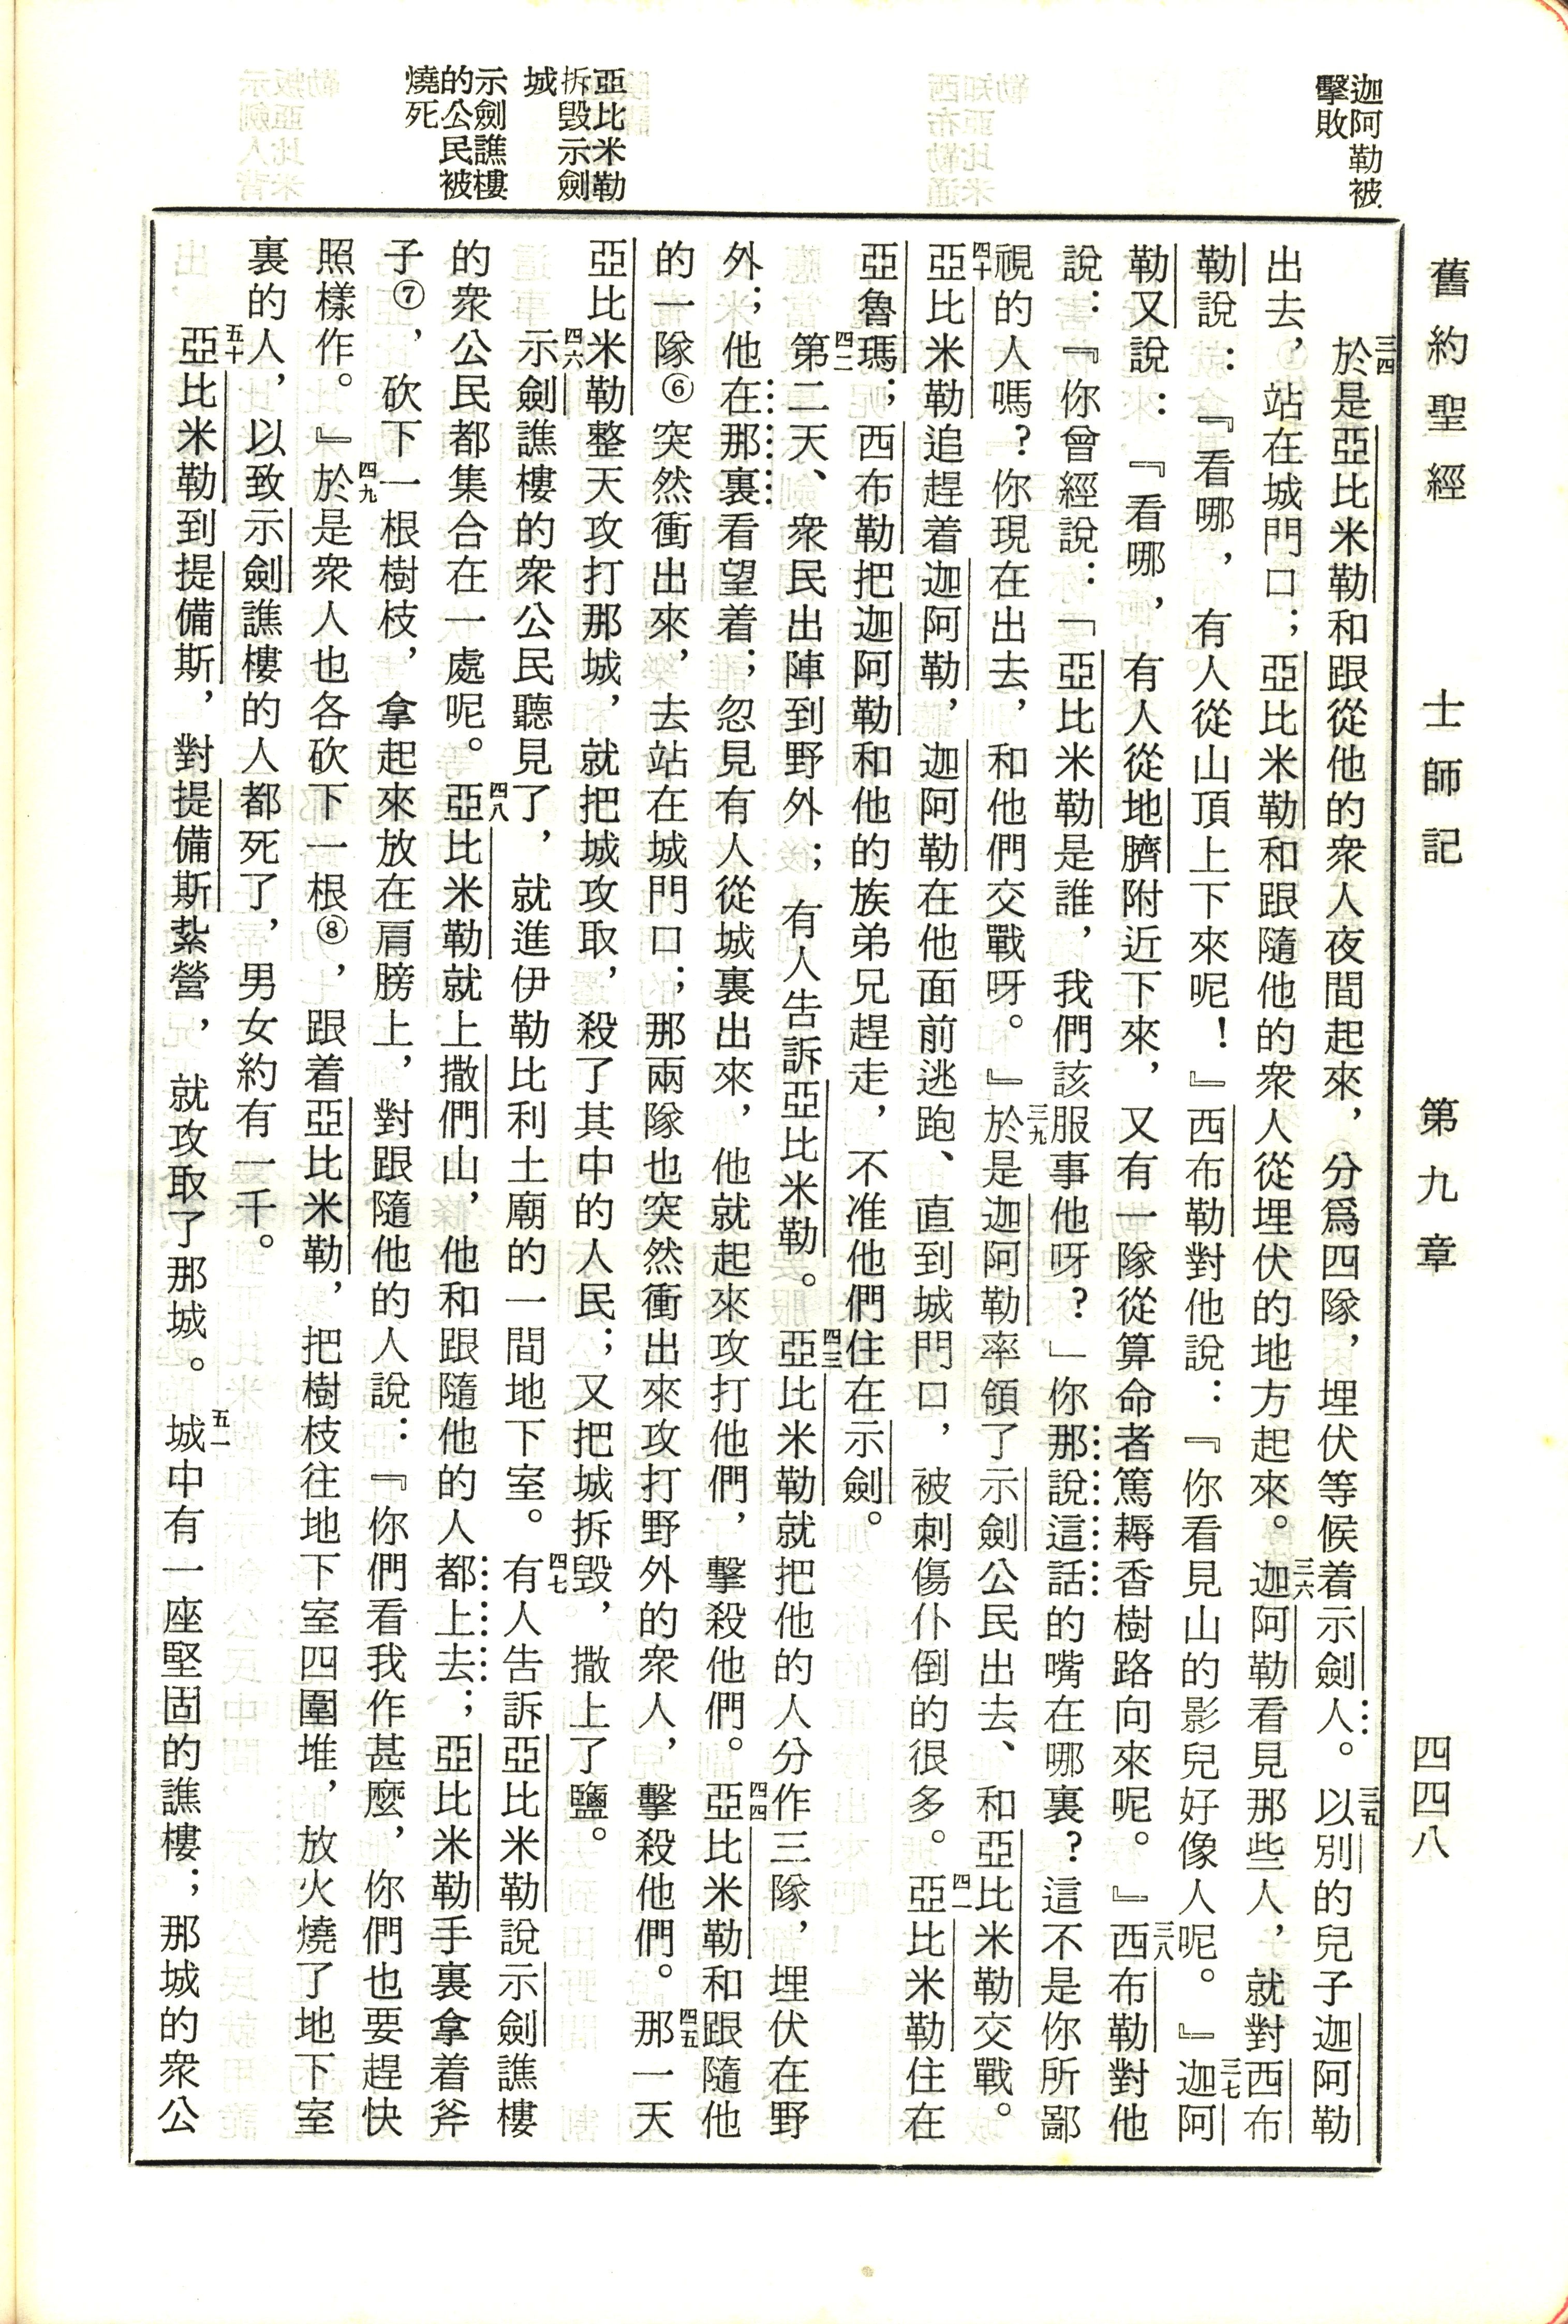 舊約聖經　士師記　第九章　四四八
迦阿勒被
擊敗
亞比米勒
拆毀示劍
城
示劍譙樓
的公民被
燒死
三四於是亞比米勒和跟從他的衆人夜間起來，分爲四隊，埋伏等候着示劍人。三五以別的兒子迦阿勒
出去，站在城門口；亞比米勒和跟隨他的衆人從埋伏的地方起來。三六迦阿勒看見那些人，就對西布
勒說：『看哪，有人從山頂上下來呢！』西布勒對他說：『你看見山的影兒好像人呢。』三七迦阿
勒又說：『看哪，有人從地臍附近下來，又有一隊從算命者篤耨香樹路向來呢。』三八西布勒對他
說：『你曾經說：「亞比米勒是誰，我們該服事他呀？」你那說這話的嘴在哪裏？這不是你所鄙
視的人嗎？你現在出去，和他們交戰呀。』三九於是迦阿勒率領了示劍公民出去、和亞比米勒交戰。
四十亞比米勒追趕着迦阿勒，迦阿勒在他面前逃跑、直到城門口，被刺傷仆倒的很多。四一亞比米勒住在
亞魯瑪；西布勒把迦阿勒和他的族弟兄趕走，不准他們住在示劍。
四二第二天、衆民出陣到野外；有人告訴亞比米勒。四三亞比米勒就把他的人分作三隊，埋伏在野
外；他在那裏看望着；忽見有人從城裏出來，他就起來攻打他們，擊殺他們。四四亞比米勒和跟隨他
的一隊⑥突然衝出來，去站在城門口；那兩隊也突然衝出來攻打野外的衆人，擊殺他們。四五那一天
亞比米勒整天攻打那城，就把城攻取，殺了其中的人民；又把城拆毀，撒上了鹽。
四六示劍譙樓的衆公民聽見了，就進伊勒比利土廟的一間地下室。四七有人告訴亞比米勒說示劍譙樓
的衆公民都集合在一處呢。四八亞比米勒就上撒們山，他和跟隨他的人都上去；亞比米勒手裏拿着斧
子⑦，砍下一根樹枝，拿起來放在肩膀上，對跟隨他的人說：『你們看我作甚麼，你們也要趕快
照樣作。』四九於是衆人也各砍下一根⑧，跟着亞比米勒，把樹枝往地下室四圍堆，放火燒了地下室
裏的人，以致示劍譙樓的人都死了，男女約有一千。
五十亞比米勒到提備斯，對提備斯紮營，就攻取了那城。五一城中有一座堅固的譙樓；那城的衆公